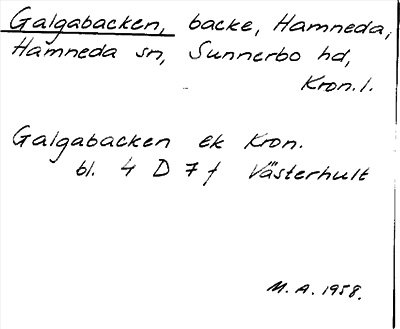 Galgabacken, backe, Hamneda,
Hamneda sn, Sunnerbo hd,
Kron. l.
Galgabacken ek Kron.
bl. 4 D 7 f Västerhult
M. A. 1958.